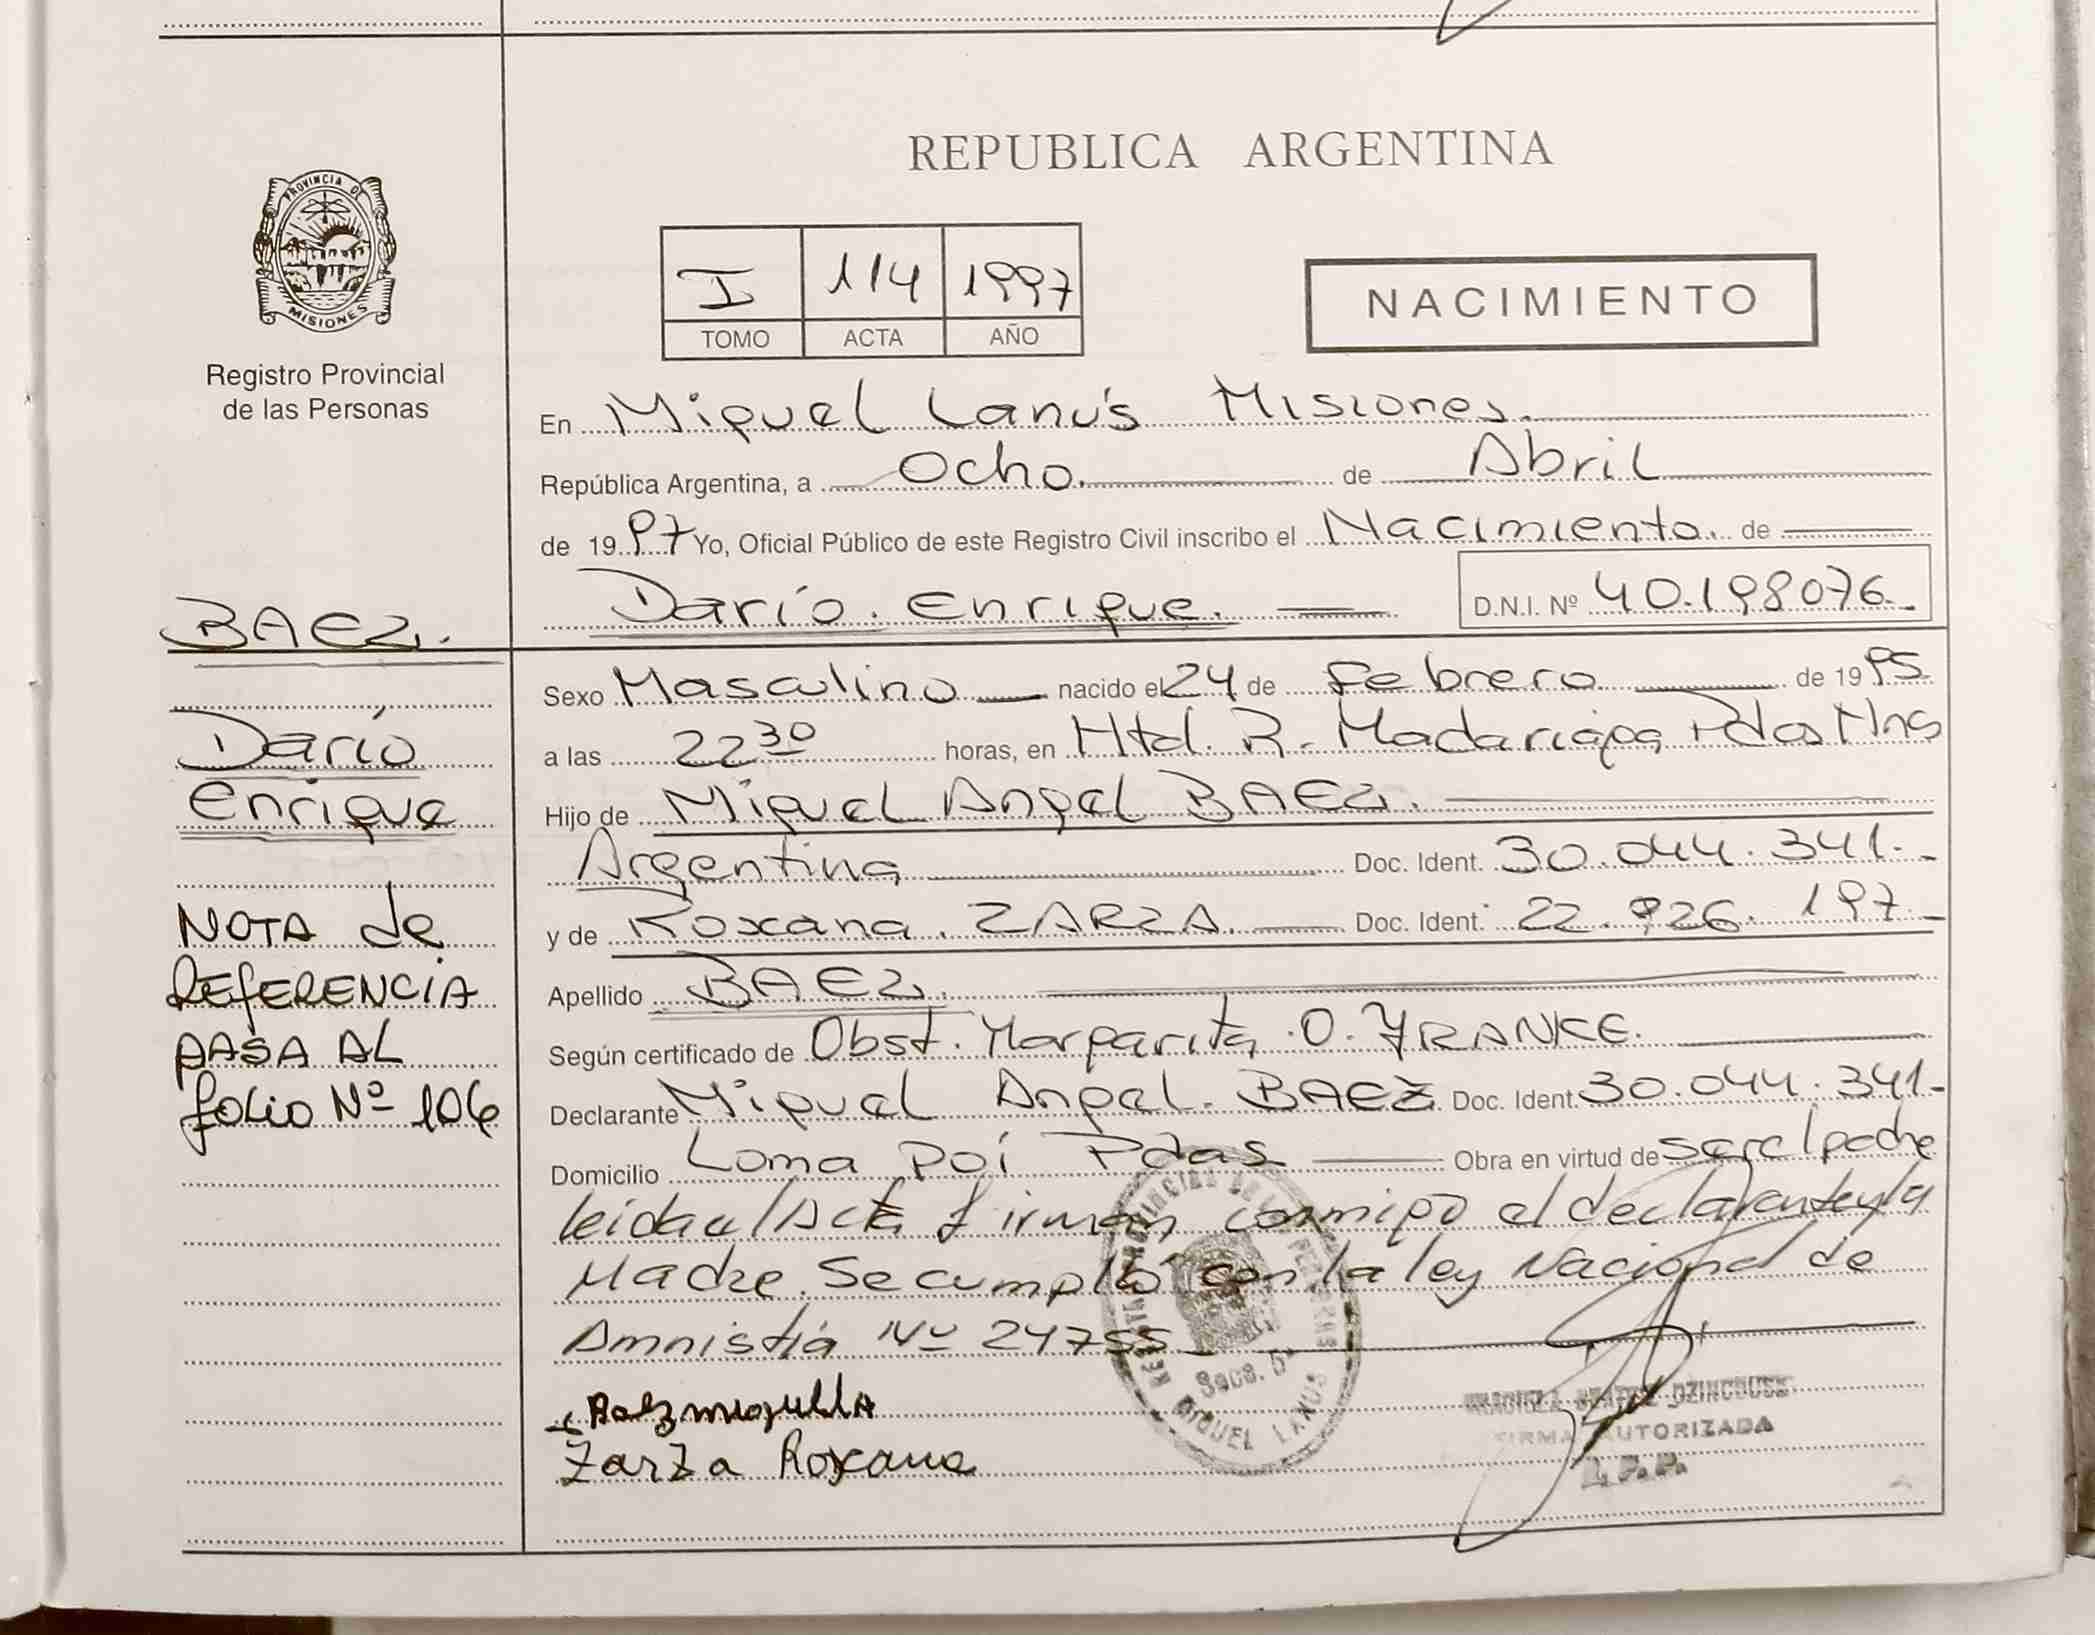 REPUBLICA ARGENTINA
PROVINCIA DE
MISIONES
Registro Provincial
de las Personas
I 114 1997
TOMO ACTA AÑO
NACIMIENTO
En Miguel Lanús Misiones.
República Argentina, a Ocho. de Abril
de 1997 Yo, Oficial Público de este Registro Civil inscribo el Nacimiento. de
Darío. Enrique. D.N.I. Nº 40.198076.
BAEZ.
Darío
Enrique
NOTA de
REFERENCIA
PASA AL
folio Nº 106
Sexo Masculino nacido el 24 de Febrero de 1995.
a las 22 30 horas, en Htal. R. Madariaga Pdas Mnes
Hijo de Miguel Angel BAEZ.
Argentina Doc. Ident. 30.044.341.-
y de Roxana. ZARZA. Doc. Ident. 22.926.197.-
Apellido BAEZ.
Según certificado de Obst. Margarita O. FRANKE.
Declarante Miguel Angel. BAEZ Doc. Ident. 30.044.341-
Domicilio Loma Poí Pdas Obra en virtud de ser el padre
leida el Acta firman conmigo el declarante y la
Madre. Se cumplió con la ley Nacional de
Amnistía Nº 24755
Zarza Roxana
REGISTRO PROVINCIAL DE LAS PERSONAS
MIGUEL LANUS
FIRMA AUTORIZADA
R. P. P.